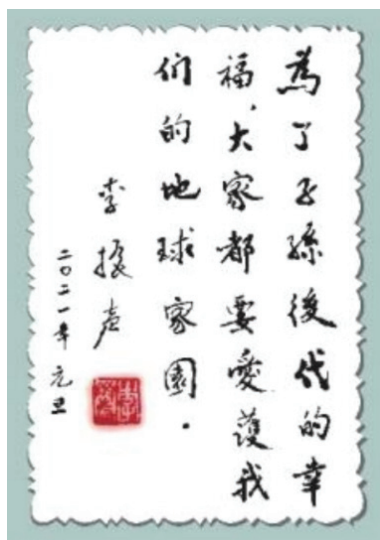 為了子孫後代的幸
福，大家都要愛護我
们的地球家園．
李振声
二〇二一年元旦